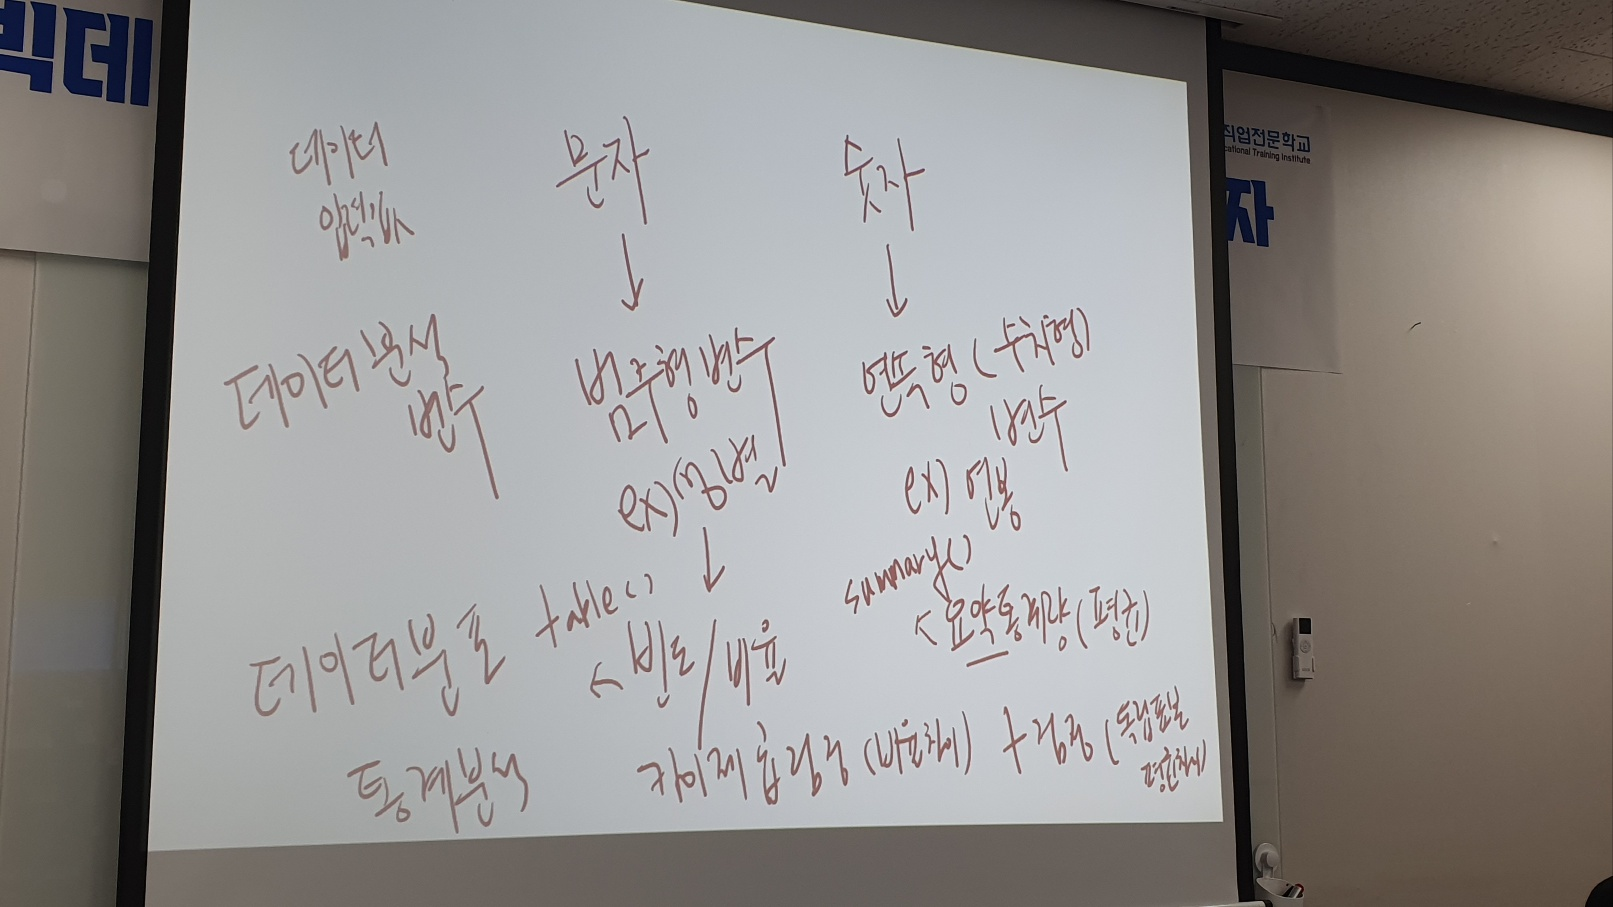 빅데
직업전문학교
cational Training Institute
자
데이터 문자 숫자
입력값
↓ ↓
데이터분석 범주형변수 연속형(수치형)
변수 변수
ex)성별 ex) 연봉
↓
데이터분포 table() summary()
← 빈도/비율 ← 요약통계량(평균)
통계분석 카이제곱검정(비율차이) t검정(독립표본
평균차이)